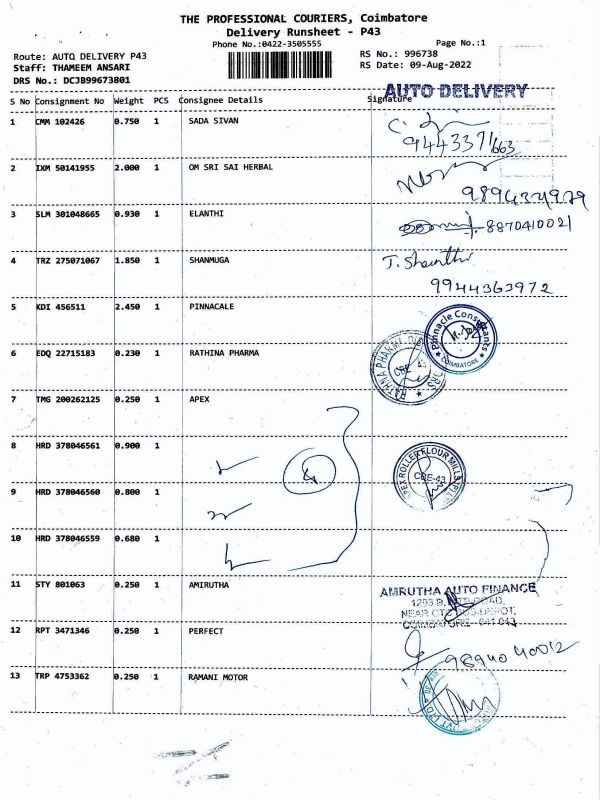 THE PROFESSIONAL COURIERS, Coimbatore
Delivery Runsheet - P43
Phone No.:0422-3505555
Page No.:1
Route: AUTO DELIVERY P43
RS No.: 996738
Staff: THAMEEM ANSARI
RS Date: 09-Aug-2022
DRS No.: DCJB99673801
AUTO DELIVERY
S No Consignment No Weight PCS Consignee Details Signature
1 CMM 102426 0.750 1 SADA SIVAN
9443371663
2 IXM 50141955 2.000 1 OM SRI SAI HERBAL
3 SLM 301048665 0.930 1 ELANTHI
8870410021
4 TRZ 275071067 1.850 1 SHANMUGA T. Shanthi
9944363972
5 KDI 456511 2.450 1 PINNACALE
Pinnacle Consultants
COIMBATORE
6 EDQ 22715183 0.230 1 RATHINA PHARMA
RATHNA PHARMA
CBE-43
7 TMG 200262125 0.250 1 APEX
8 HRD 378046561 0.900 1
ROLLER FLOUR MILLS
CBE-43
9 HRD 378046560 0.800 1
10 HRD 378046559 0.680 1
11 STY 801063 0.250 1 AMIRUTHA
AMRUTHA AUTO FINANCE
1293 B, ROAD,
NEAR CTC BUS DEPOT,
COIMBATORE - 641 043
12 RPT 3471346 0.250 1 PERFECT
9894040012
13 TRP 4753362 0.250 1 RAMANI MOTOR